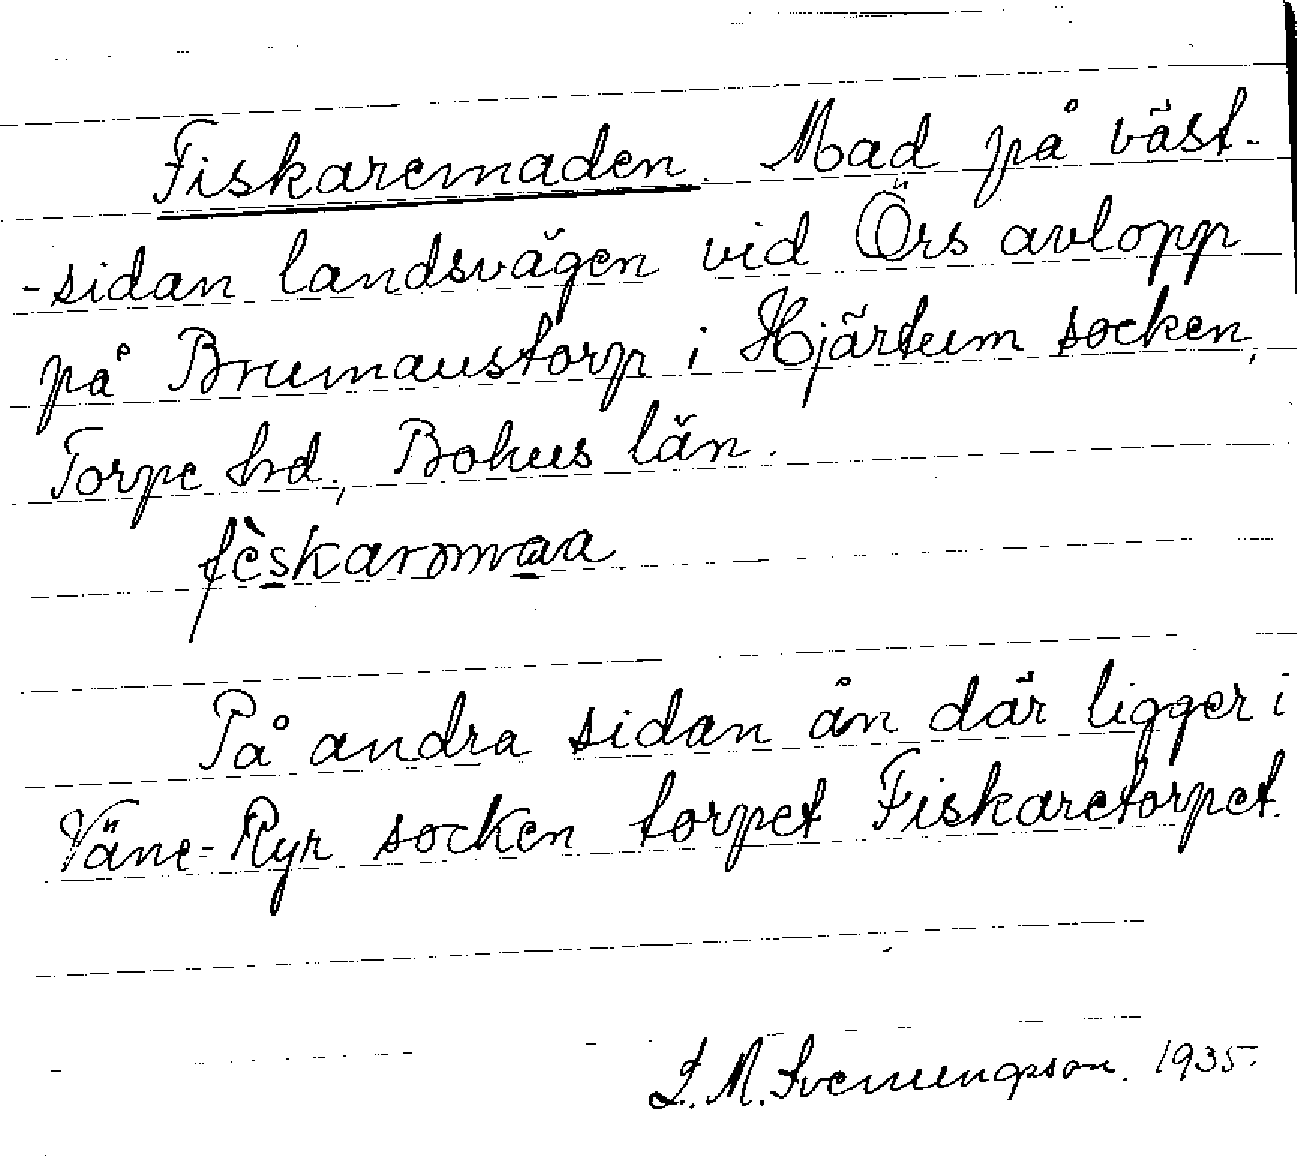 Fiskaremaden. Mad på väst-
-sidan landsvägen vid Örs avlopp
på Brumaustorp i Hjärtum socken,
Torpe hrd, Bohus län.
fèskarəmaa
På andra sidan ån där ligger i
Väne-Ryr socken torpet Fiskaretorpet.
L. M. Svenungsson. 1935.